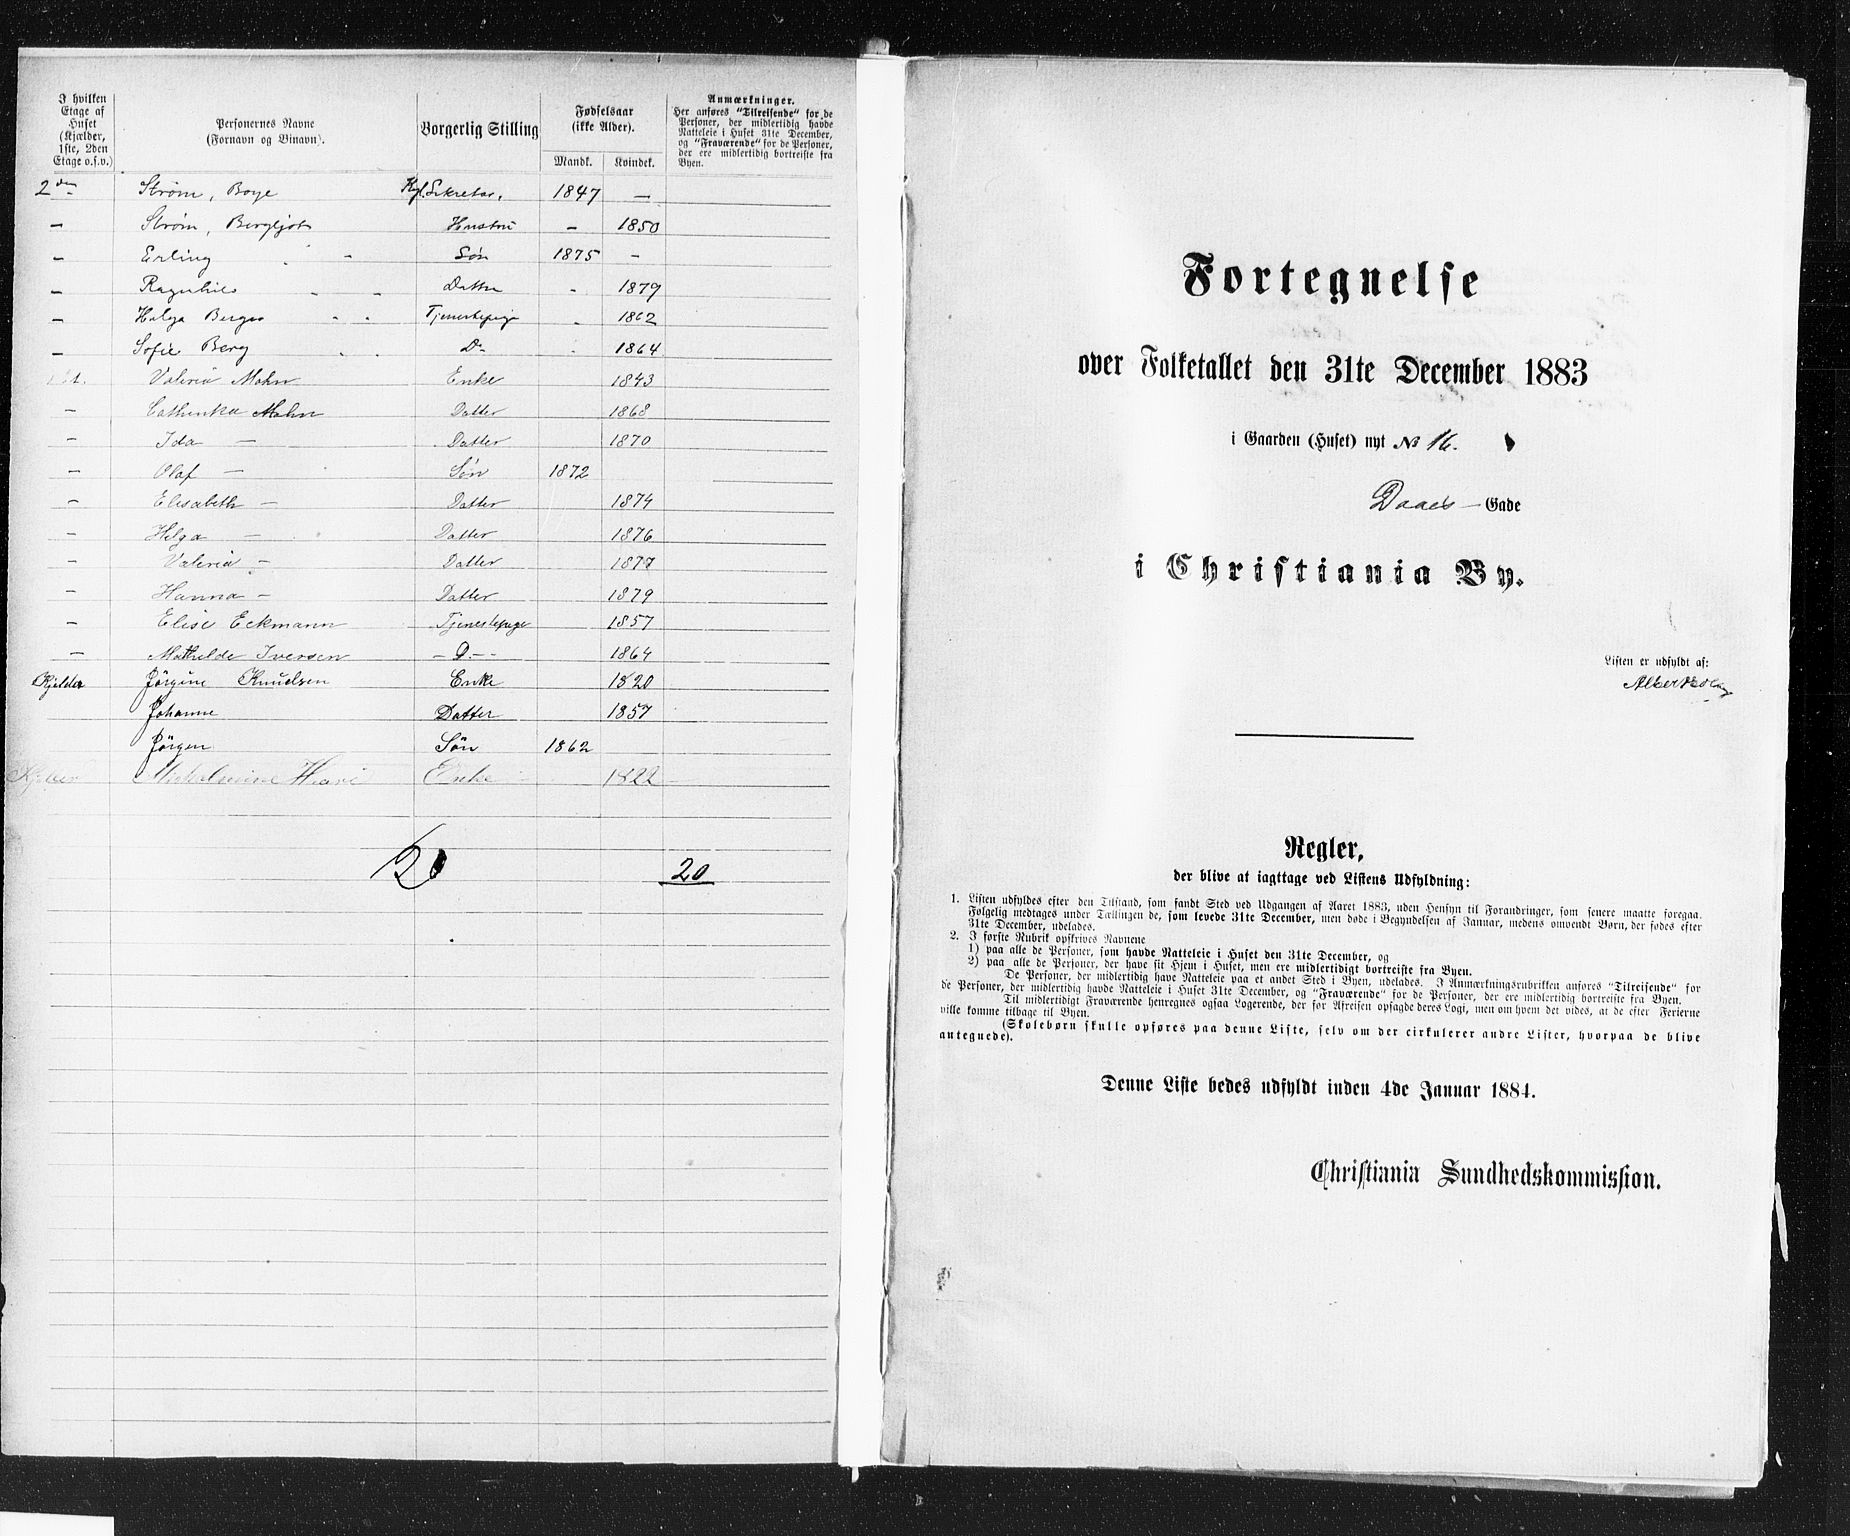 I hvilken Etage af Huset (Kjælder, 1ste, 2den Etage o.s.v.) | Personernes Navne (Fornavn og Binavn). | Borgerlig Stilling | Fødselsaar (ikke Alder). Mandk. Kvindek. | Anmærkninger. Her anføres "Tilreisende" for de Personer, der midlertidig havde Natteleie i Huset 31te December, og "Fraværende" for de Personer, der ere midlertidig bortreiste fra Byen.
2den Strøm, Boye Kgl. Sekretær. 1847 —
— Strøm, Bergljot Hustru — 1850
— Erling - Søn 1875 —
— Ragnhild - - Datter - 1879
— Helga - - Tjenestepige - 1862
— Sofie Berg - - Do - 1864
1st. Valeria Mohn Enke 1843
— Cathinka Mohn Datter 1868
— Ida — Datter 1870
— Olaf — Søn 1872
— Elisabeth — Datter 1874
— Helga — Datter 1876
— Valeria — Datter 1877
— Hanna — Datter 1879
— Elise Eckmann Tjenestepige 1857
— Mathilde Iversen — D. — 1864
Kjelder Jörgine Knudsen Enke 1820
Johanne Datter 1857
Jörgen Sön 1862
Kjelder Enke 1822
20 20
Fortegnelse
over Folketallet den 31te December 1883
i Gaarden (Huset) nyt No 16.
Daaes — Gade
i Christiania By.
Listen er udfyldt af:
Regler,
der blive at iagttage ved Listens Udfyldning:
1. Listen udfyldes efter den Tilstand, som fandt Sted ved Udgangen af Aaret 1883, uden Hensyn til Forandringer, som senere maatte foregaa.
Følgelig medtages under Tællingen de, som levede 31te December, men døde i Begyndelsen af Januar, medens omvendt Børn, der fødes efter
31te December, udelades.
2. I første Rubrik opskrives Navnene
1) paa alle de Personer, som havde Natteleie i Huset den 31te December, og
2) paa alle de Personer, der have sit Hjem i Huset, men ere midlertidigt bortreiste fra Byen.
De Personer, der midlertidig have Natteleie paa et andet Sted i Byen, udelades. I Anmærkningsrubrikken anføres "Tilreisende" for
de Personer, der midlertidig havde Natteleie i Huset 31te December, og "Fraværende" for de Personer, der ere midlertidig bortreiste fra Byen.
Til midlertidigt Fraværende henregnes ogsaa Logerende, der før Afreisen opsagde deres Logi, men om hvem det vides, at de efter Ferierne
ville komme tilbage til Byen.
(Skolebørn skulle opføres paa denne Liste, selv om der cirkulerer andre Lister, hvorpaa de blive
antegnede).
Denne Liste bedes udfyldt inden 4de Januar 1884.
Christiania Sundhedskommission.